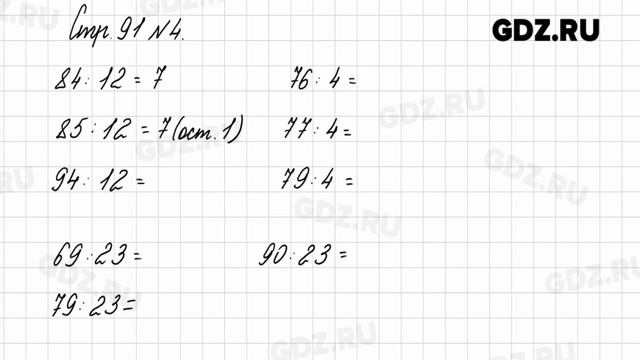 Стр. 91 №4.
GDZ.RU
84 : 12 = 7
76 : 4 =
85 : 12 = 7 (ост. 1)
77 : 4 =
94 : 12 =
79 : 4 =
69 : 23 =
90 : 23 =
79 : 23 =
GDZ.RU
GDZ.RU
GDZ.RU
GDZ.RU
GDZ.RU
GDZ.RU
GDZ.RU